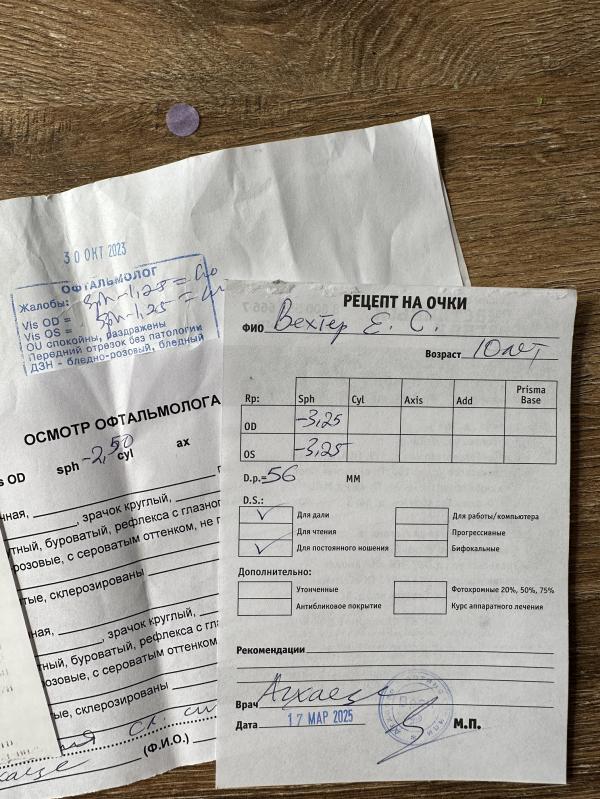 30 ОКТ 2023
ОФТАЛЬМОЛОГ
Жалобы: Sph -1,25 =
Vis OD = Sph -1,25 =
Vis OS =
OU спокойны, раздражены
Передний отрезок без патологии
ДЗН - бледно-розовый, бледный
ОСМОТР ОФТАЛЬМОЛОГА
s OD sph -2,50 cyl ax
чная, зрачок круглый,
тный, буроватый, рефлекса с глазног
розовые, с сероватым оттенком, не г
тые, склерозированы
ная, зрачок круглый,
ный, буроватый, рефлекса с гла
озовые, с сероватым оттенком
ые, склерозированы
(Ф.И.О.)
РЕЦЕПТ НА ОЧКИ
ФИО Вехтер Е. С.
Возраст 10 лет
Rp: Sph Cyl Axis Add Prisma Base
OD -3,25
OS -3,25
D.p.=56 мм
D.S.:
Для дали
Для чтения
Для постоянного ношения
Для работы/компьютера
Прогрессивные
Бифокальные
Дополнительно:
Утонченные
Антибликовое покрытие
Фотохромные 20%, 50%, 75%
Курс аппаратного лечения
Рекомендации
Врач
Дата 17 МАР 2025 М.П.